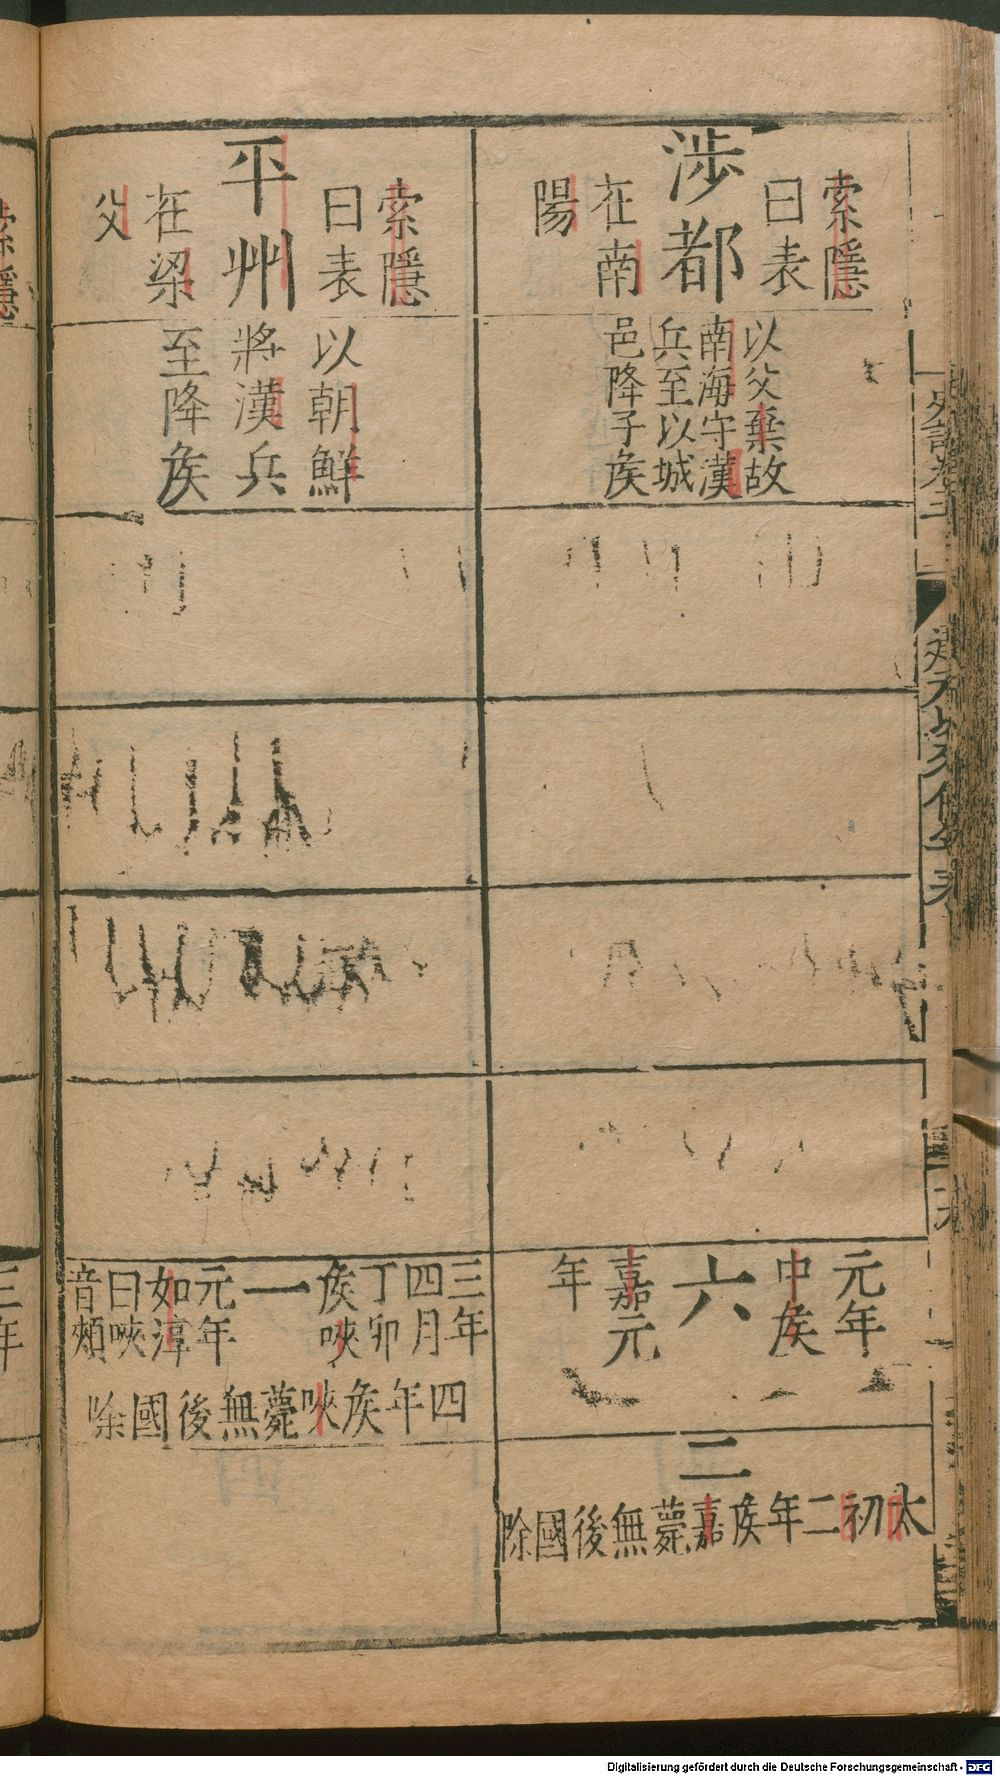 涉都
索隱
曰表
在南
陽
以父棄故
南海守漢
兵至以城
邑降子侯
元年
中侯
六
嘉元
年
二
太初二年侯嘉薨無後國除
平州
索隱
曰表
在梁
父
以朝鮮
將漢兵
至降侯
三年
四月
丁卯
侯唊
一
元年
如淳
曰唊
音頰
四年侯唊薨無後國除
索隱
三年
Digitalisierung gefördert durch die Deutsche Forschungsgemeinschaft - DFG